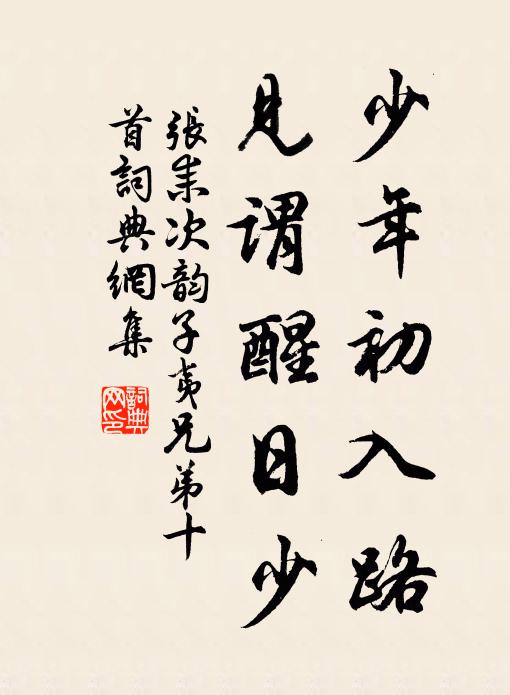 少年初入路
見謂醒日少
張耒次韵子夷兄弟十
首詞典網集
詞典
网印